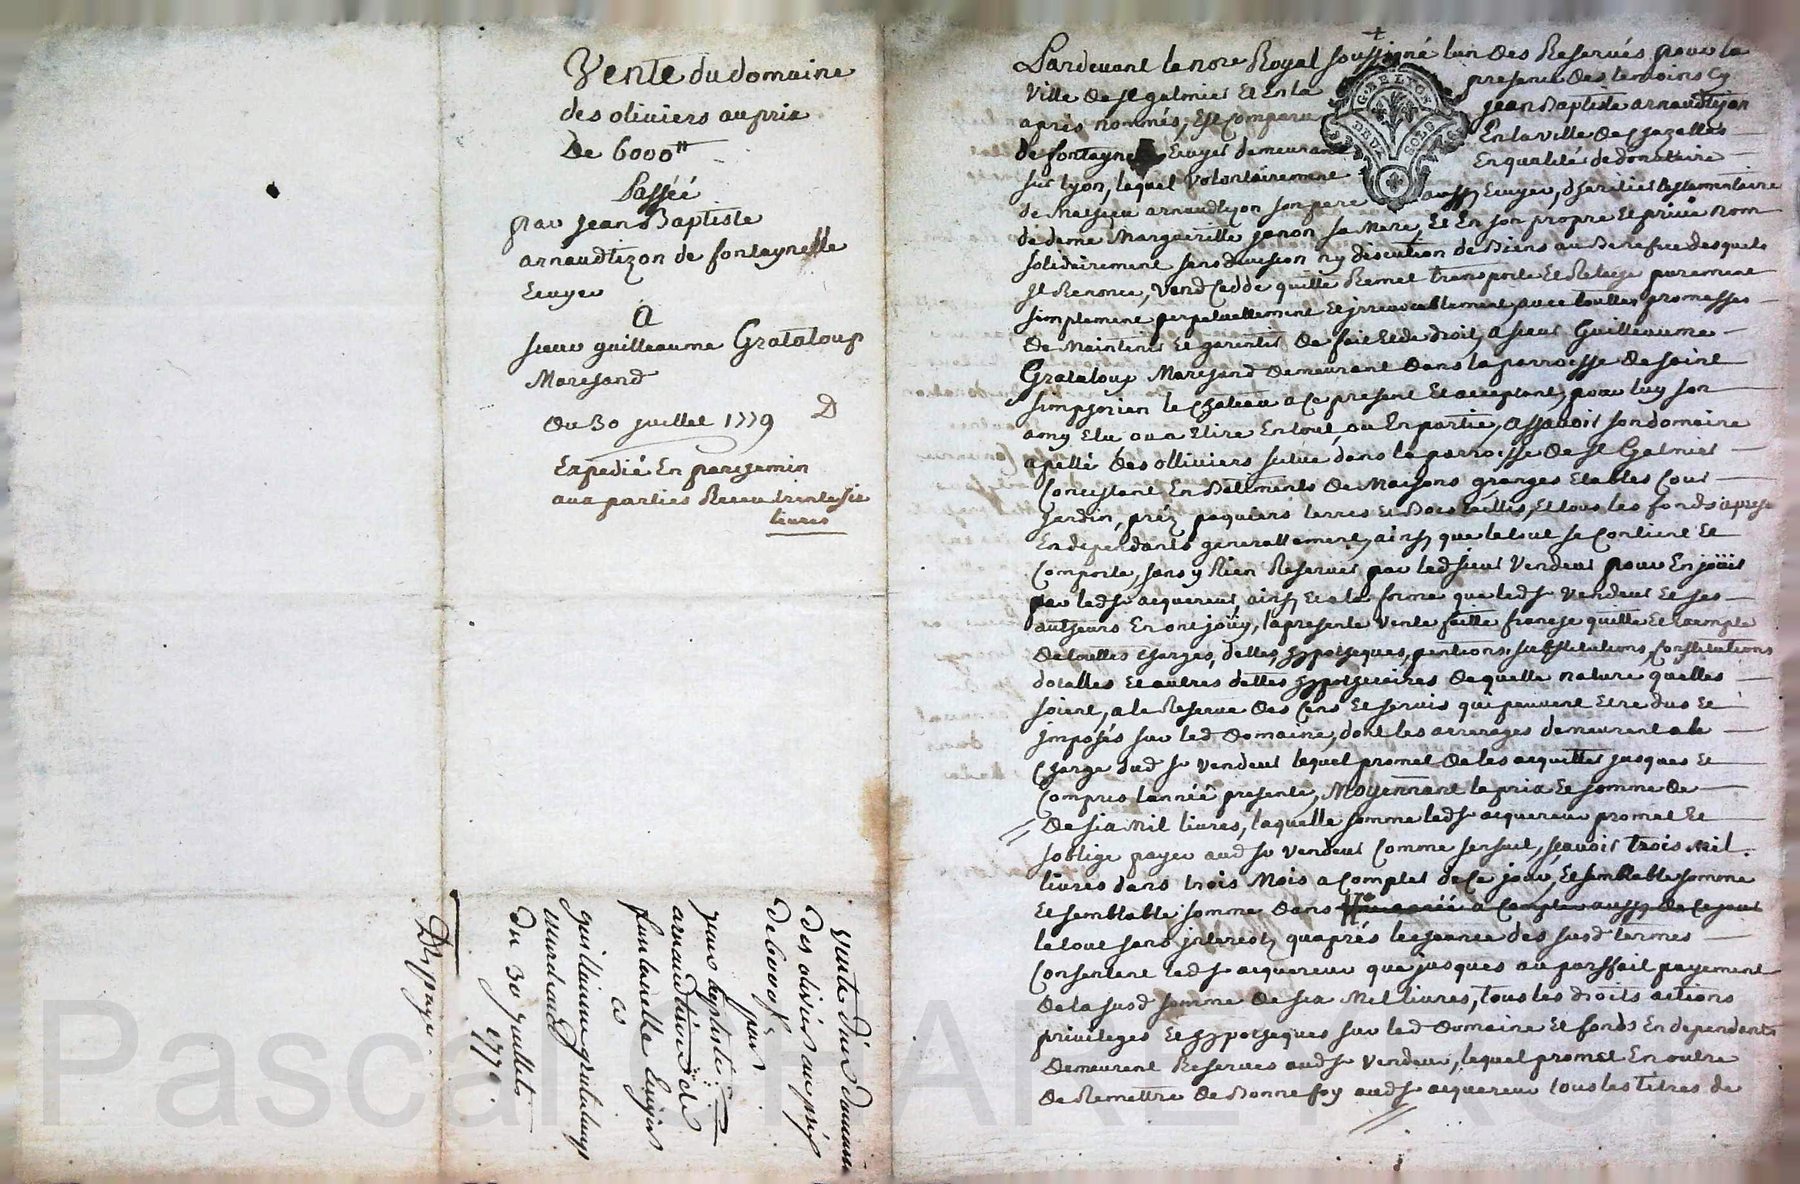 Vente du domaine
des oliviers au prix
De 6000₶
Passéé
par jean Baptiste
arnaudtizon de fontaynelle
Ecuyer
A
sieur guilleaume Grataloup
Marchand
Du 30 juillet 1779 D
Expedié En parchemin
aux parties Receu trente six
livres
vente d'un domaine
des oliviers au prix
de 6000₶
par
jean baptiste
arnaudtizon de
fontanelle Ecuyer
a
guillaume grataloup
marchand
du 30 juillet
1779
D. page
Pardevant le nore Royal soussigné lun des Reservés pour la
Ville de st galmier Et En la presence des temoins cy
après nommés, Est Comparu jean Baptiste arnaudtizon
de fontaynelle Ecuyer demeurant En la ville de chazelles
sur lyon, lequel Volontairement En qualité de donattaire
de Mathieu arnaudtizon son pere aussy Ecuyer, d'heritier testamentaire
de deme Margueritte janon sa Mere, Et En son propre Et privé nom
solidairement sans division ny discution de Biens au Benefice desquels
Il Renonce, Vend Cedde quitte Remet transporte Et Relache purement
simplement perpetuellement Et jrrevocablement, avec touttes promesses
de Maintenir Et garentir de fait Et de droit, a sieur Guilleaume
Grataloup Marchand demeurant dans la parroisse de saint
simphorien le chateau a Ce present Et acceptant, pour luy son
amy Elu ou a Elire En tout ou En partie, assavoir son domaine
apellé des olliviers scitué dans la parroisse de st Galmier
Concistant En Batiments de Maisons granges Etables Cour
jardin, préz paquiers terres Et Bois taillis, Et tous les fonds
En dependants generallement, ainsy que le tout se Contient Et
Comporte, sans y Rien Reserver par led sieur Vendeur pour En joüir
par led sr acquereur ainsy Et a la forme que led sr Vendeur Et ses
autheurs En ont joüy, la presente Vente faitte franche quitte Et Exempte
de touttes charges, dettes, hypotheques, pentions, substitutions, Constitutions
dotalles Et autres dettes hypothecaires de quelle nature quelles
soient, a la Reserve des Cens Et servis qui peuvent Etre dus Et
jmposés sur led domaine, dont les arrerages demeurent a la
Charge dud sr Vendeur lequel promet de les acquitter jusques Et
Compris lannéé presente, Moyennant le prix Et somme de
de six Mil livres, laquelle somme led sr acquereur promet Et
soblige payer aud sr Vendeur Comme sensuit, scavoir trois Mil
livres dans trois Mois a Compter de Ce jour, Et semblable somme
Et semblable somme dans a Compter aussy de Ce jour
le tout sans jnterest, quaprés lecheance des susd termes
Consentent led sr acquereur que jusques au parfait payement
de la susd somme de six Mil livres, tous les droits actions
privileges Et hypotheques sur led domaine Et fonds En dependants
demeurent Reservés aud sr Vendeur, lequel promet En outre
de Remettre de Bonne foy aud sr acquereur tous les titres de
GEN. LYON
DEUX SOLS
Pascal CHAREYRON